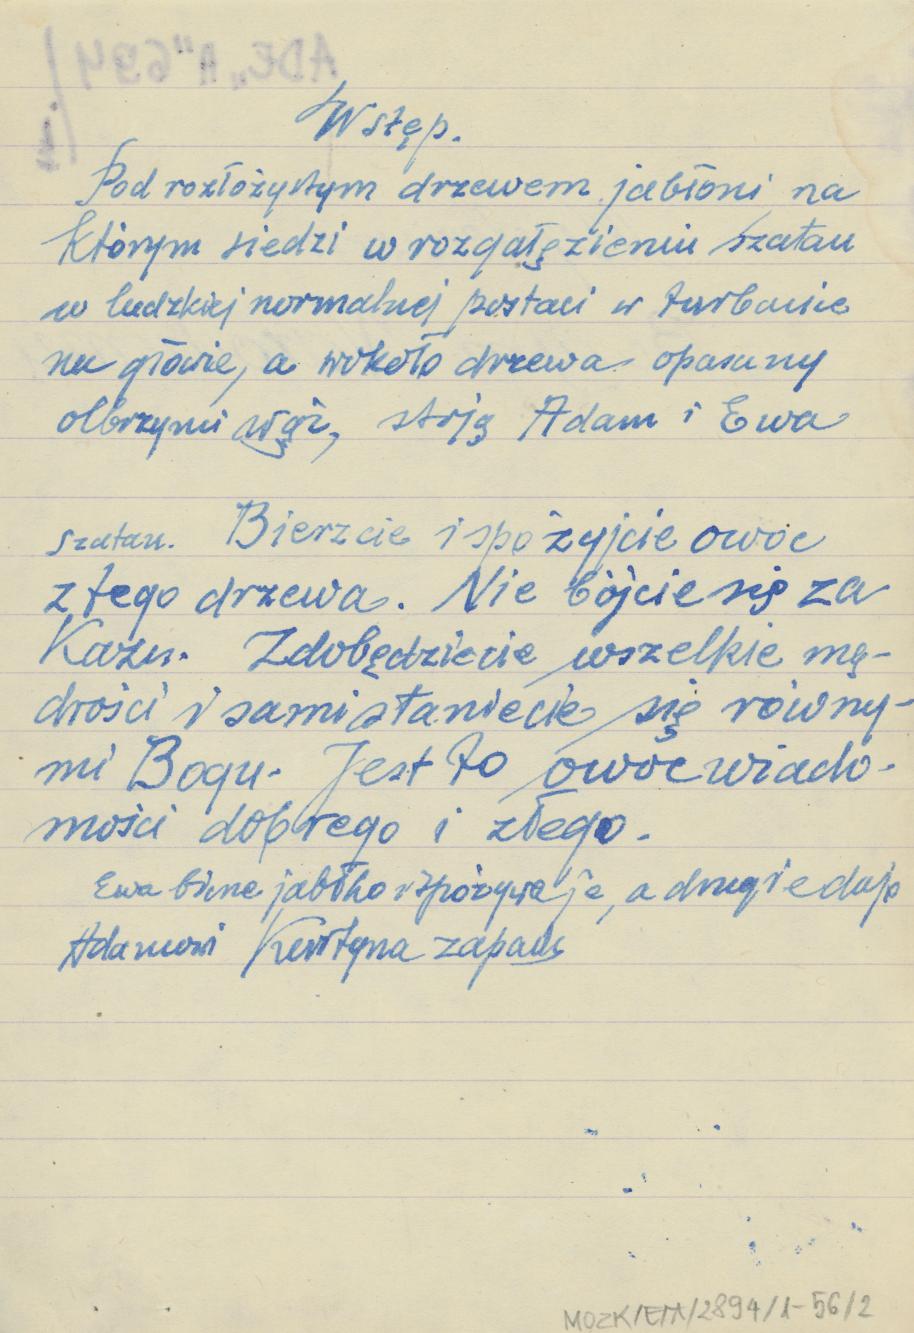 ADE „A" 694
Wstęp.
Pod rozłożystym drzewem jabłoni na
którym siedzi w rozgałęzieniu szatan
w ludzkiej normalnej postaci w turbanie
na głowie, a wokoło drzewa opasany
olbrzymi wąż, stoją Adam i Ewa
szatan. Bierzcie i spożyjcie owoc
z tego drzewa. Nie bójcie się za
Kazu. Zdobędziecie wszelkie mą-
drości i sami staniecie się równy-
mi Bogu. Jest to owoc wiado-
mości dobrego i złego.
Ewa bierze jabłko i spożywa je, a drugie daje
Adamowi Kurtyna zapada
MOZK/E/A/2894/1-56/2